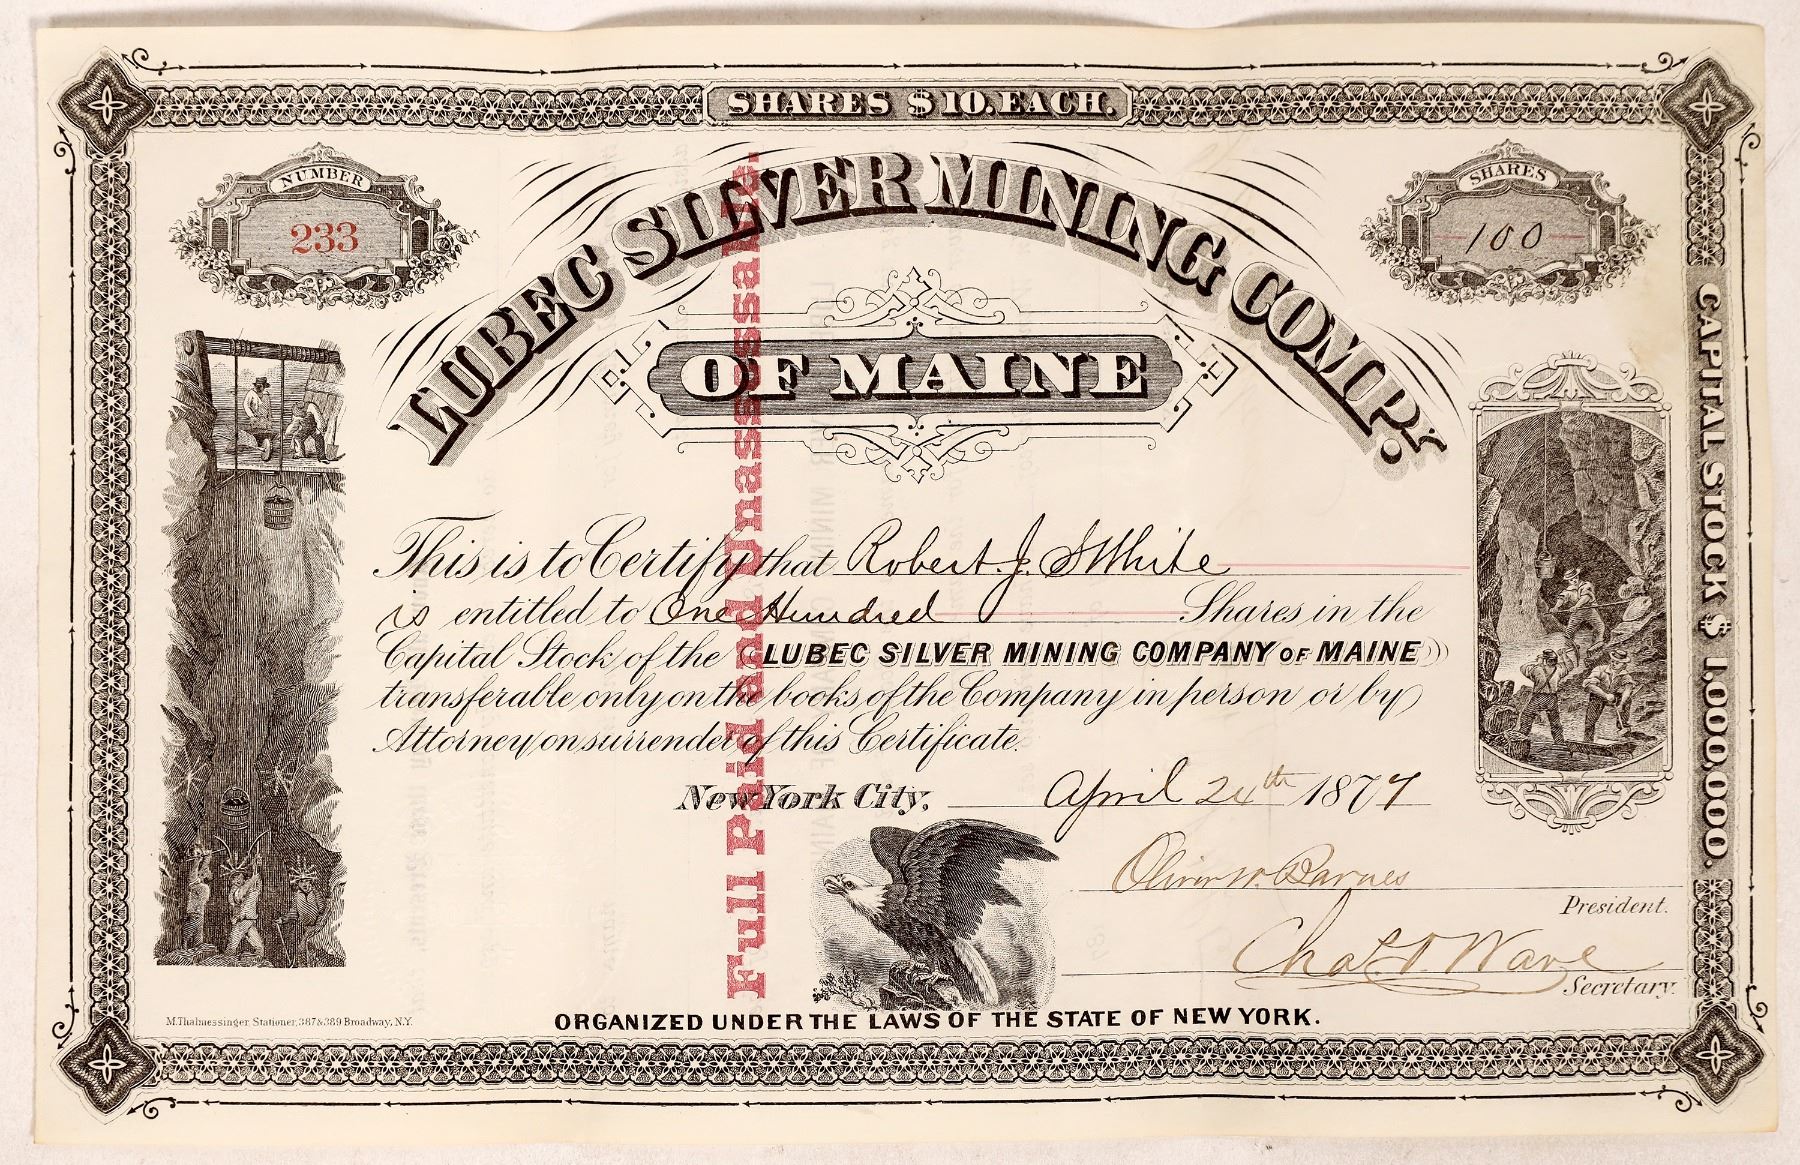 SHARES $10. EACH.
NUMBER
233
SHARES
100
LUBEC SILVER MINING COMP.Y
OF MAINE
CAPITAL STOCK $ 1,000,000.
Full Paid and Unassessable.
This is to Certify that Robert J. S White
is entitled to One Hundred Shares in the
Capital Stock of the LUBEC SILVER MINING COMPANY OF MAINE
transferable only on the books of the Company in person or by
Attorney on surrender of this Certificate.
New York City, April 24th 1877
Oliver W. Barnes
President.
Secretary.
M. Thalmessinger, Stationer, 387 & 389 Broadway, N.Y.
ORGANIZED UNDER THE LAWS OF THE STATE OF NEW YORK.